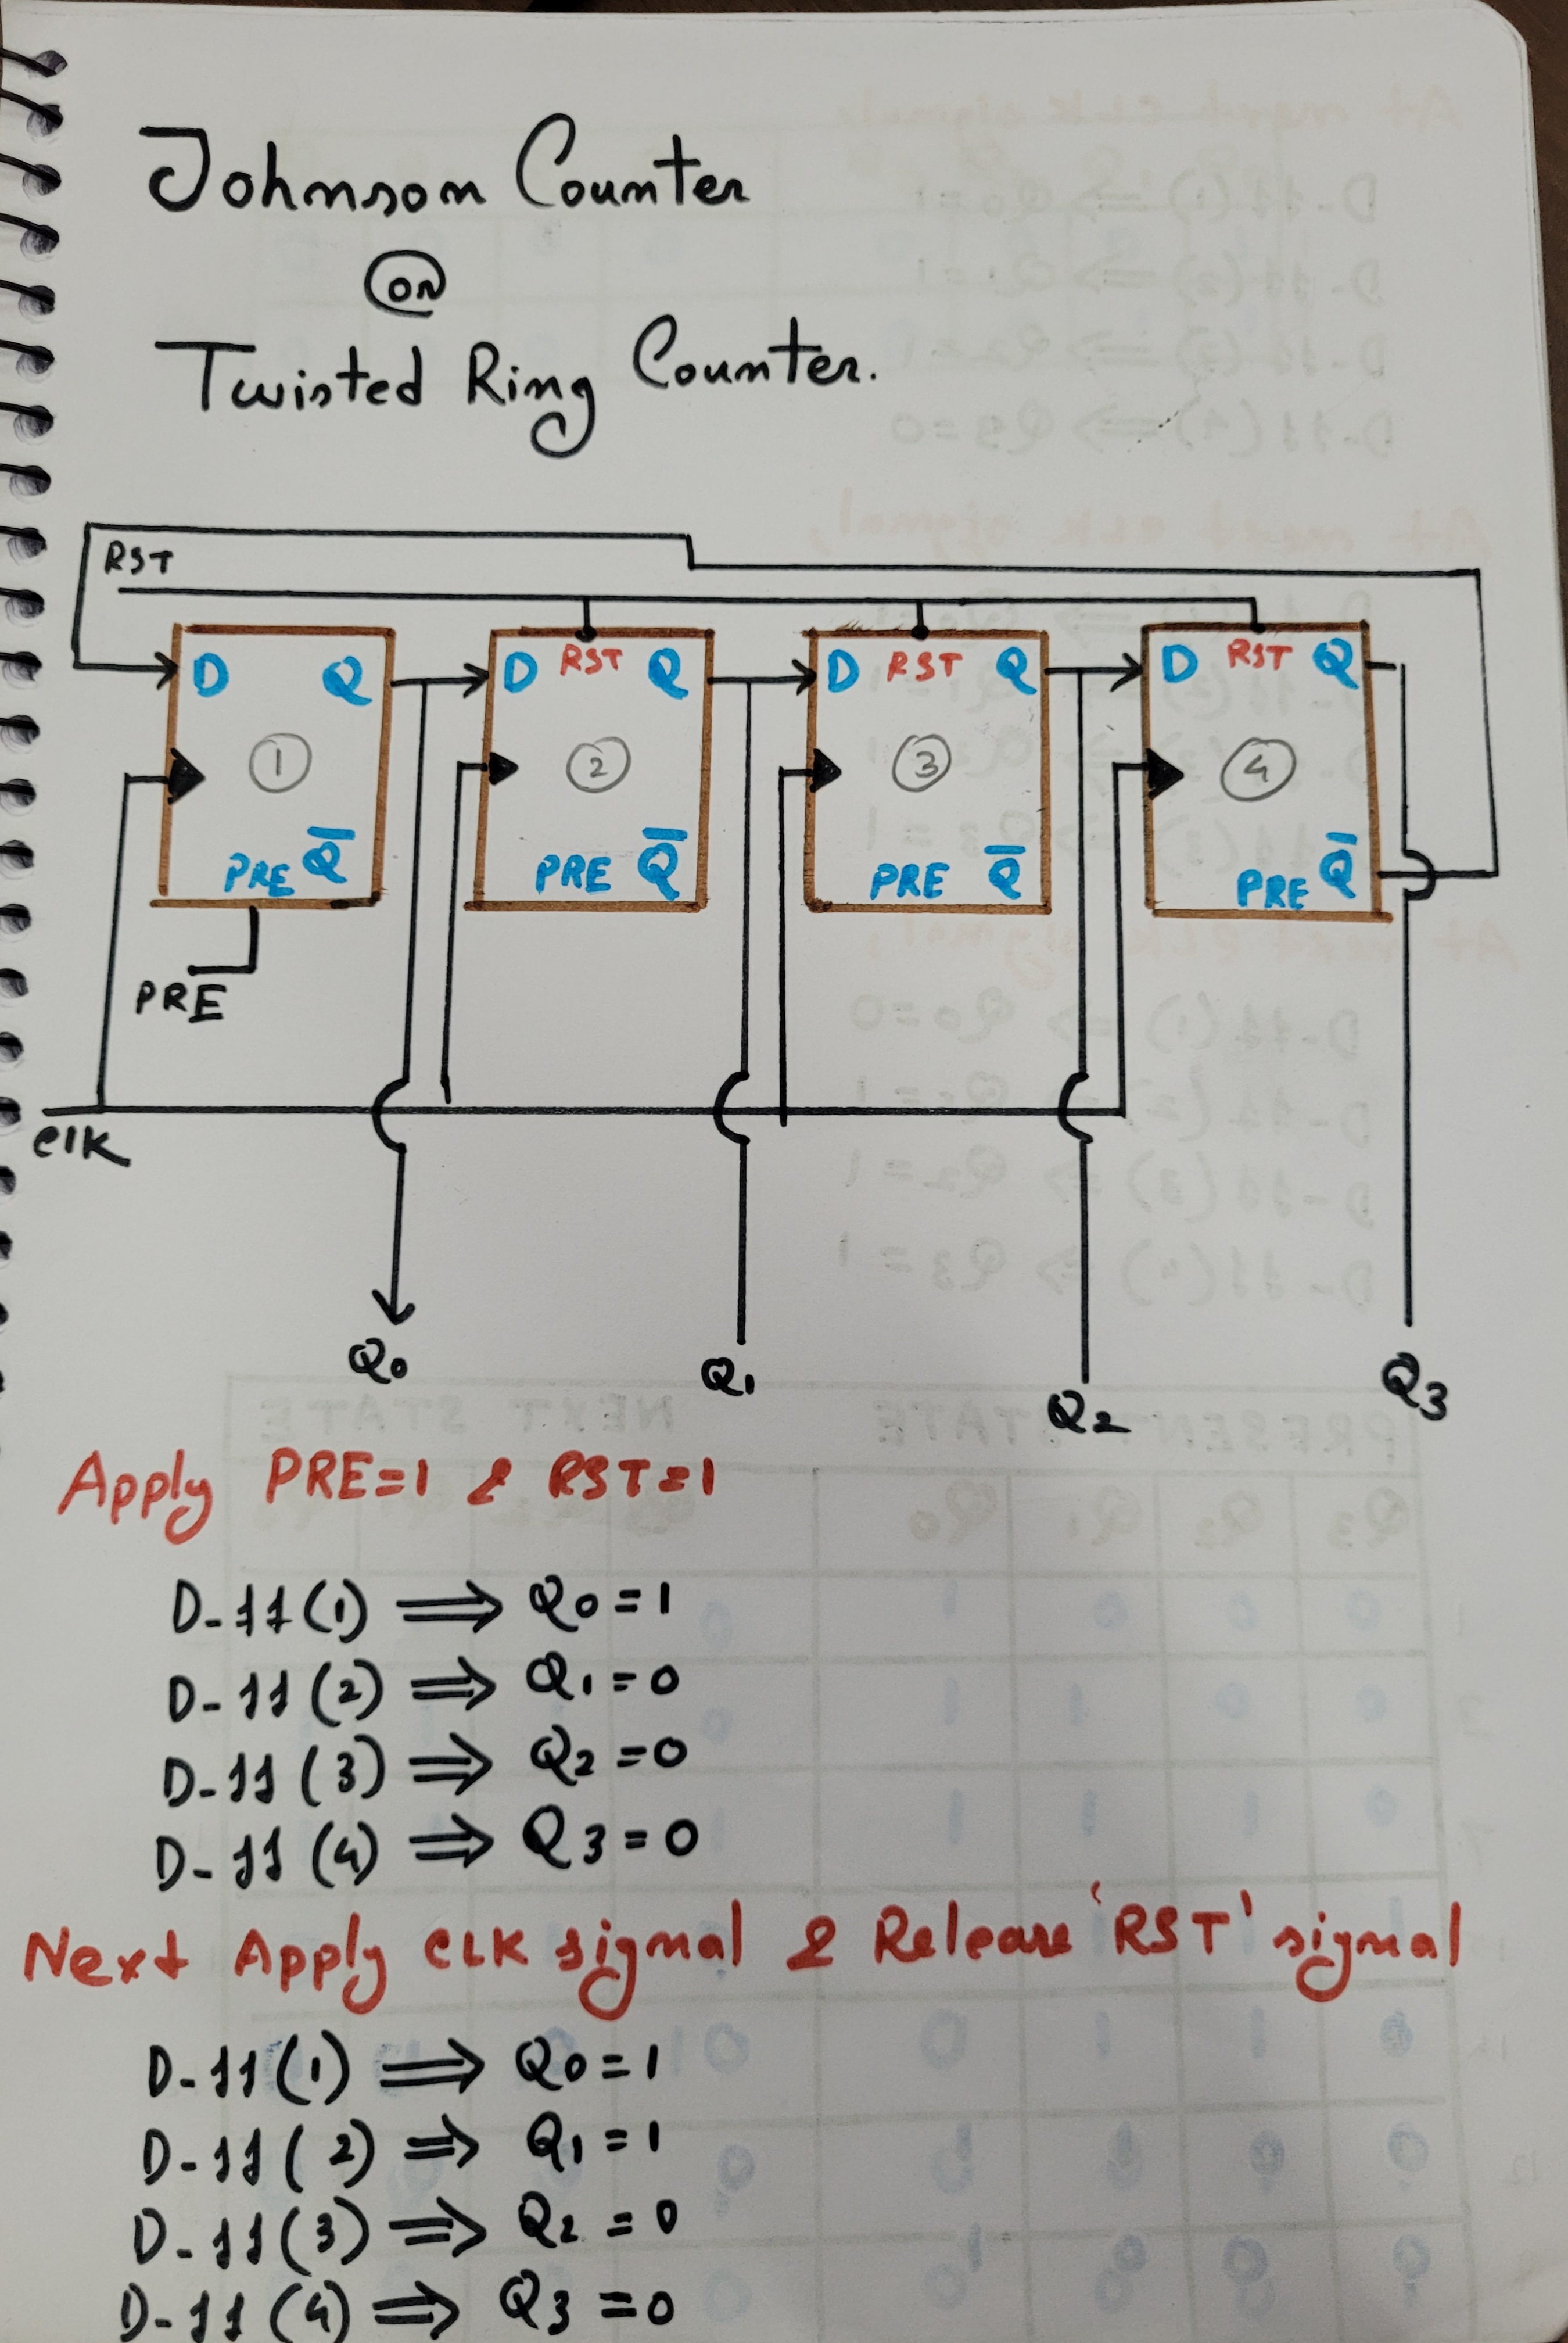 Johnson Counter
or
Twisted Ring Counter.
RST
D Q D RST Q D RST Q D RST Q
1 2 3 4
PRE Q̅ PRE Q̅ PRE Q̅ PRE Q̅
PRE
CLK
Q0 Q1 Q2 Q3
Apply PRE=1 & RST=1
D-ff(1) ⟹ Q0=1
D-ff(2) ⟹ Q1=0
D-ff(3) ⟹ Q2=0
D-ff(4) ⟹ Q3=0
Next Apply CLK signal & Release 'RST' signal
D-ff(1) ⟹ Q0=1
D-ff(2) ⟹ Q1=1
D-ff(3) ⟹ Q2=0
D-ff(4) ⟹ Q3=0